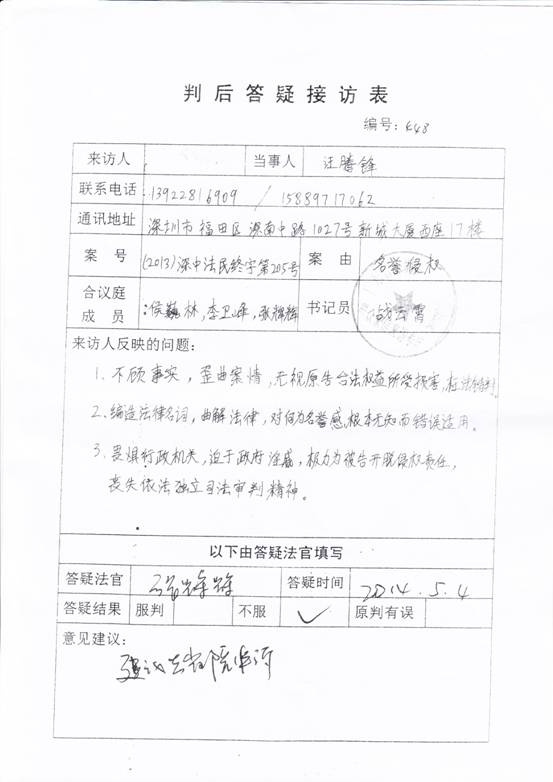 判后答疑接访表
编号：K48
来访人 当事人 汪腾锋
联系电话 13922816909 / 15889717062
通讯地址 深圳市福田区深南中路1027号新城大厦西座17楼
案号 (2013)深中法民终字第205号 案由 名誉侵权
合议庭成员 侯巍林,李卫峰,张辉辉 书记员
来访人反映的问题：
1. 不顾事实，歪曲案情，无视原告合法权益所受损害，枉法裁判。
2. 编造法律名词，曲解法律，对何为名誉感，根本无知而错误适用。
3. 畏惧行政机关，迫于政府淫威，极力为被告开脱侵权责任，
丧失依法独立司法审判精神。
以下由答疑法官填写
答疑法官 答疑时间 2014.5.4
答疑结果 服判 不服 ✓ 原判有误
意见建议：